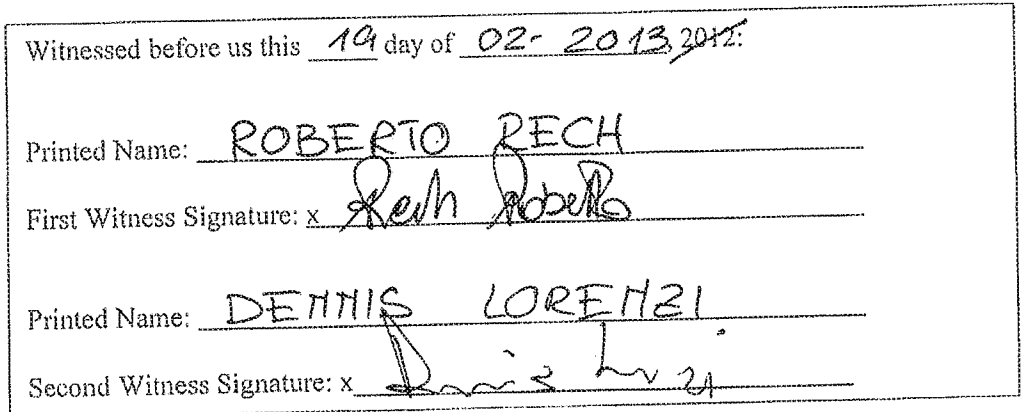 Witnessed before us this 19 day of 02- 2013, 2012:
Printed Name: ROBERTO RECH
First Witness Signature: x Rech Roberto
Printed Name: DENNIS LORENZI
Second Witness Signature: x